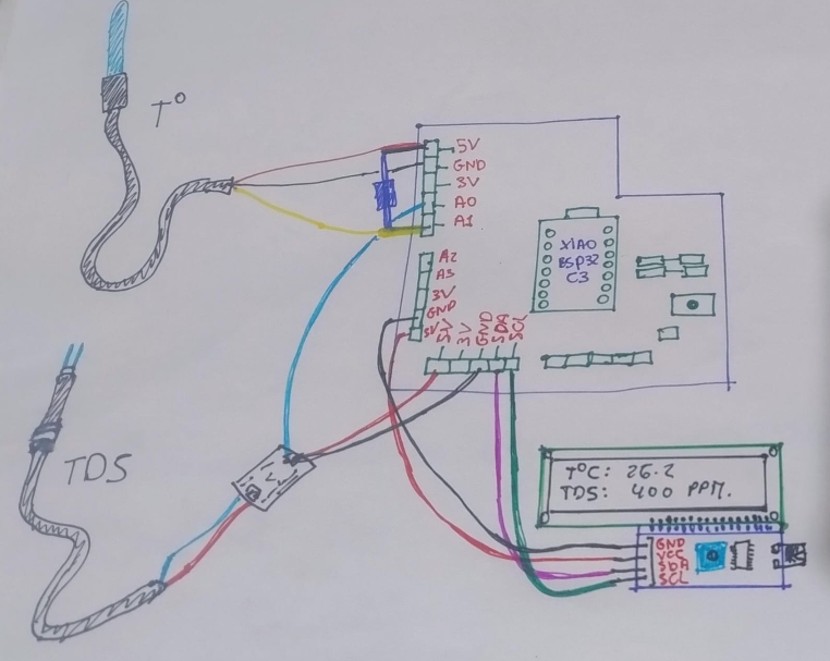 T°
5V
GND
3V
A0
A1
XIAO
ESP32
C3
A2
A3
3V
GND
5V
5V
3V
GND
SDA
SCL
TDS
T°C: 26.2
TDS: 400 PPM.
GND
VCC
SDA
SCL